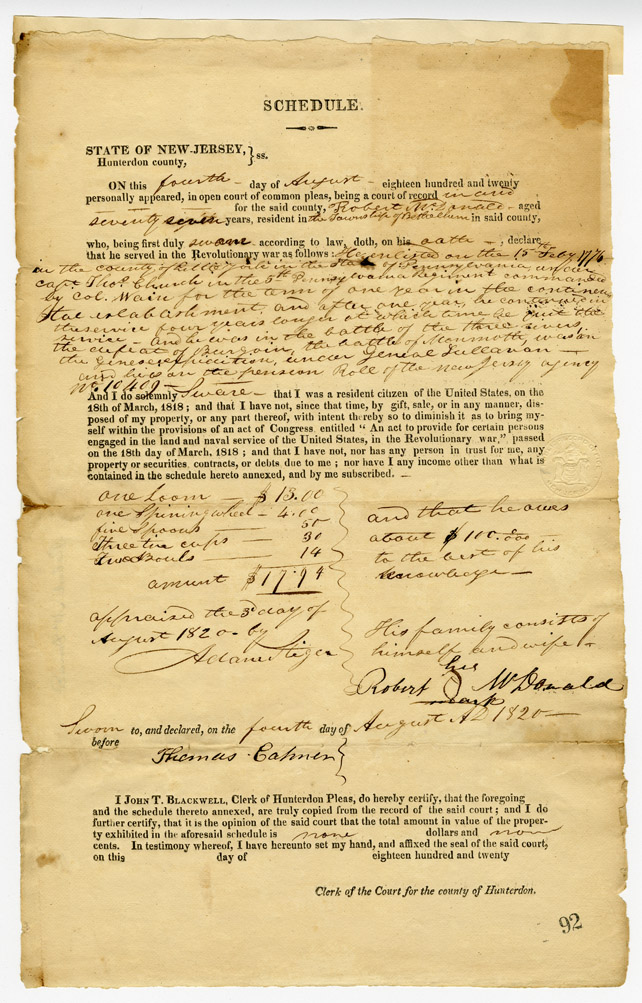 SCHEDULE.
STATE OF NEW-JERSEY, } ss.
Hunterdon county,
ON this fourth day of August eighteen hundred and twenty
personally appeared, in open court of common pleas, being a court of record in and
for the said county, Robert McDonald aged
seventy seven years, resident in the Township of Bethlehem in said county,
who, being first duly sworn according to law, doth, on his oath, declare
that he served in the Revolutionary war as follows: He enlisted on the 15th Feby 1776
in the county of in the State of Pennsylvania, under
capt Thos. Church in the 5th Pennsylvania Regiment commanded
by Col. Wain for the term of one year in the continen
tal establashment, and after one year, he continued in
the service four years longer at which time he quit the
service - and he was in the battle of the three rivers,
the defeat of Burgoin, the battle of Monmoth, was on
the Genesee expedition, under General Sullavan -
and he is on the pension Roll of the new Jersey agency
No. 10,409 -
And I do solemnly Sware - that I was a resident citizen of the United States, on the
18th of March, 1818; and that I have not, since that time, by gift, sale, or in any manner, dis-
posed of my property, or any part thereof, with intent thereby so to diminish it as to bring my-
self within the provisions of an act of Congress entitled "An act to provide for certain persons
engaged in the land and naval service of the United States, in the Revolutionary war," passed
on the 18th day of March, 1818; and that I have not, nor has any person in trust for me, any
property or securities, contracts, or debts due to me; nor have I any income other than what is
contained in the schedule hereto annexed, and by me subscribed. -
one Loom - $13.00
one Spining wheel - 4.00
five Spoons 50
three tin cups - 30
two Bouls - 14
amount $17.94
appraised the 3d day of
August 1820 - by
Adam Tiger
and that he owes
about $100.00
to the best of his
knowlege -
His family consists of
himself and wife -
his
Robert McDonald
mark
Sworn to, and declared, on the fourth day of August AD 1820 -
before
Thomas Cahner
I JOHN T. BLACKWELL, Clerk of Hunterdon Pleas, do hereby certify, that the foregoing
and the schedule thereto annexed, are truly copied from the record of the said court; and I do
further certify, that it is the opinion of the said court that the total amount in value of the proper-
ty exhibited in the aforesaid schedule is none dollars and
cents. In testimony whereof, I have hereunto set my hand, and affixed the seal of the said court,
on this day of eighteen hundred and twenty
Clerk of the Court for the county of Hunterdon.
92